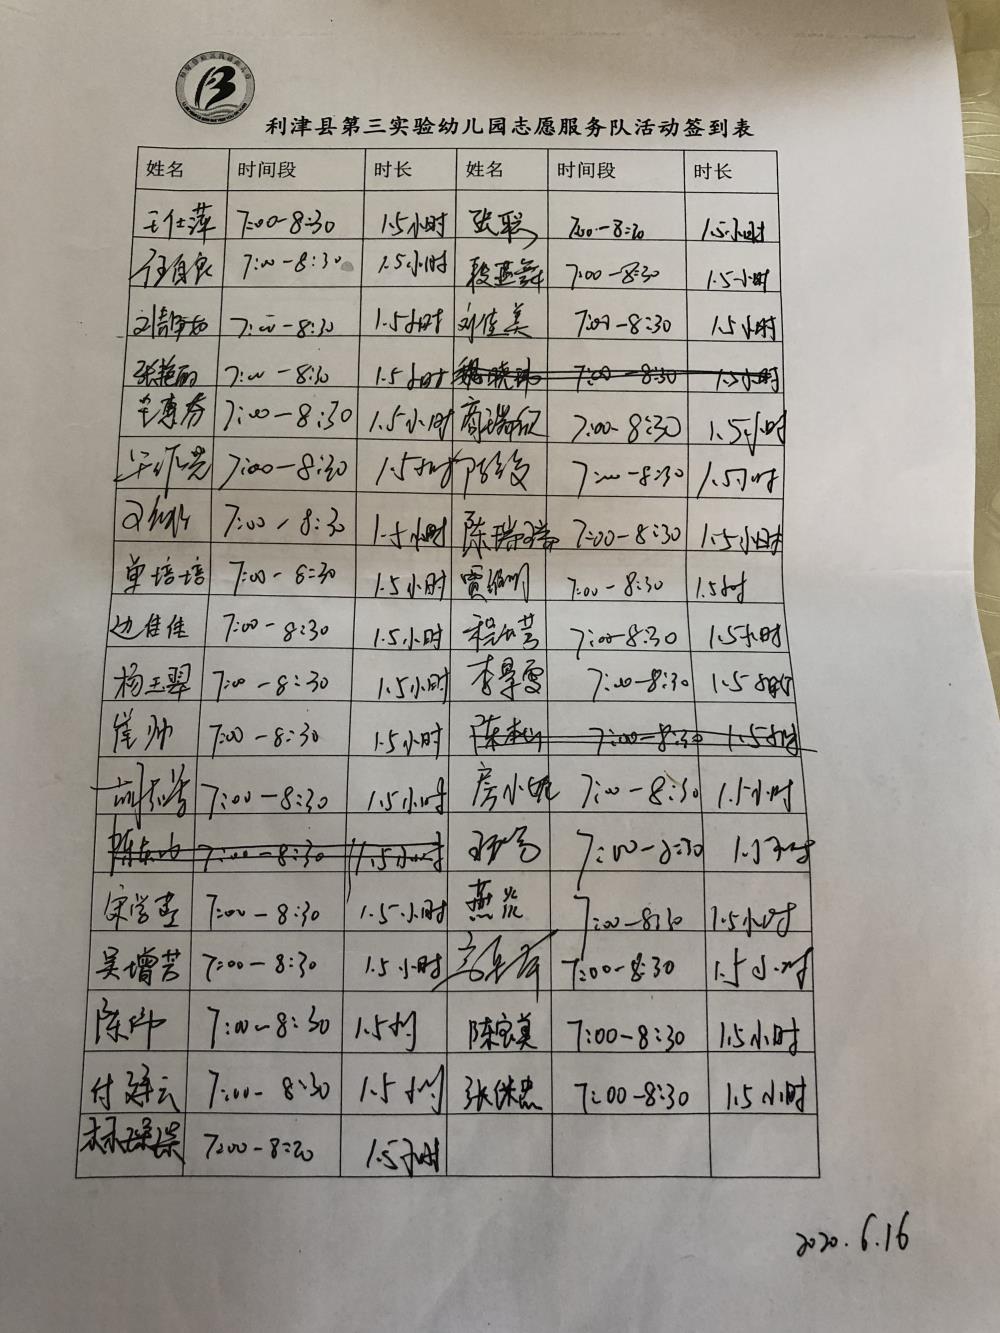 利津县第三实验幼儿园志愿服务队活动签到表
姓名 时间段 时长 姓名 时间段 时长
王仕萍 7:00-8:30 1.5小时 张聪 7:00-8:30 1.5小时
7:00-8:30 1.5小时 段燕舞 7:00-8:30 1.5小时
7:00-8:30 1.5小时 刘佳美 7:00-8:30 1.5小时
张艳丽 7:00-8:30 1.5小时 魏晓玮 7:00-8:30 1.5小时
7:00-8:30 1.5小时 商瑞欣 7:00-8:30 1.5小时
7:00-8:30 1.5小时 7:00-8:30 1.5小时
7:00-8:30 1.5小时 陈瑞瑞 7:00-8:30 1.5小时
单培培 7:00-8:30 1.5小时 7:00-8:30 1.5小时
边佳佳 7:00-8:30 1.5小时 7:00-8:30 1.5小时
杨玉翠 7:00-8:30 1.5小时 李景雪 7:00-8:30 1.5小时
崔帅 7:00-8:30 1.5小时 7:00-8:30 1.5小时
7:00-8:30 1.5小时 房小娓 7:00-8:30 1.5小时
7:00-8:30 1.5小时 7:00-8:30 1.5小时
宋学春 7:00-8:30 1.5小时 7:00-8:30 1.5小时
吴增芳 7:00-8:30 1.5小时 7:00-8:30 1.5小时
陈帅 7:00-8:30 1.5小时 陈宝莫 7:00-8:30 1.5小时
7:00-8:30 1.5小时 7:00-8:30 1.5小时
林琛琛 7:00-8:30 1.5小时
2020.6.16